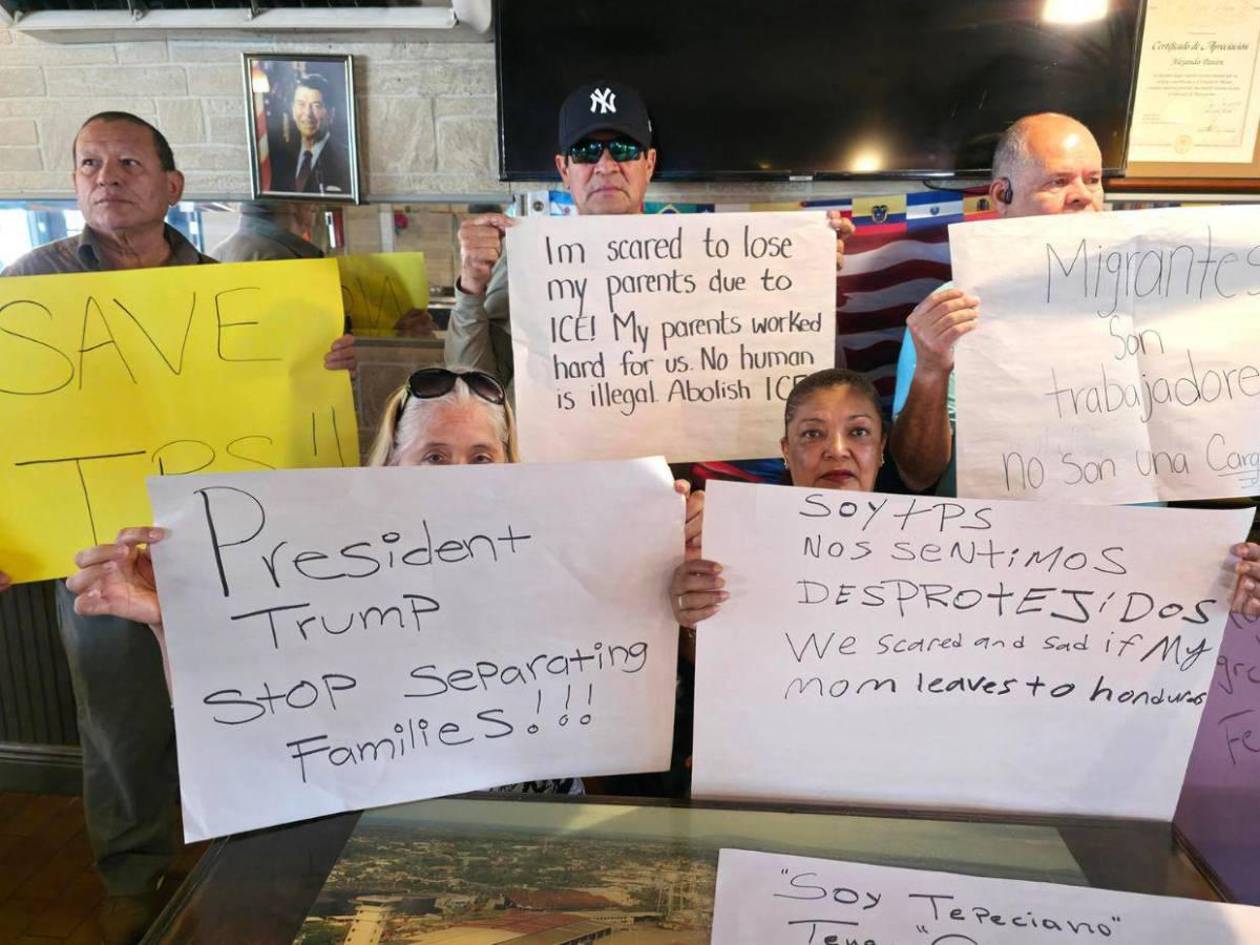 Certificado de Apreciación
NY
SAVE
TPS!!
Im scared to lose
my parents due to
ICE! My parents worked
hard for us. No human
is illegal. Abolish ICE
Migrantes
Son
trabajadore
no son una Carg
President
Trump
Stop Separating
Families!!!
Soy tPS
Nos sentimos
DESPROtEJiDOS
We scared and sad if My
mom leaves to honduras
"Soy Tepeciano"